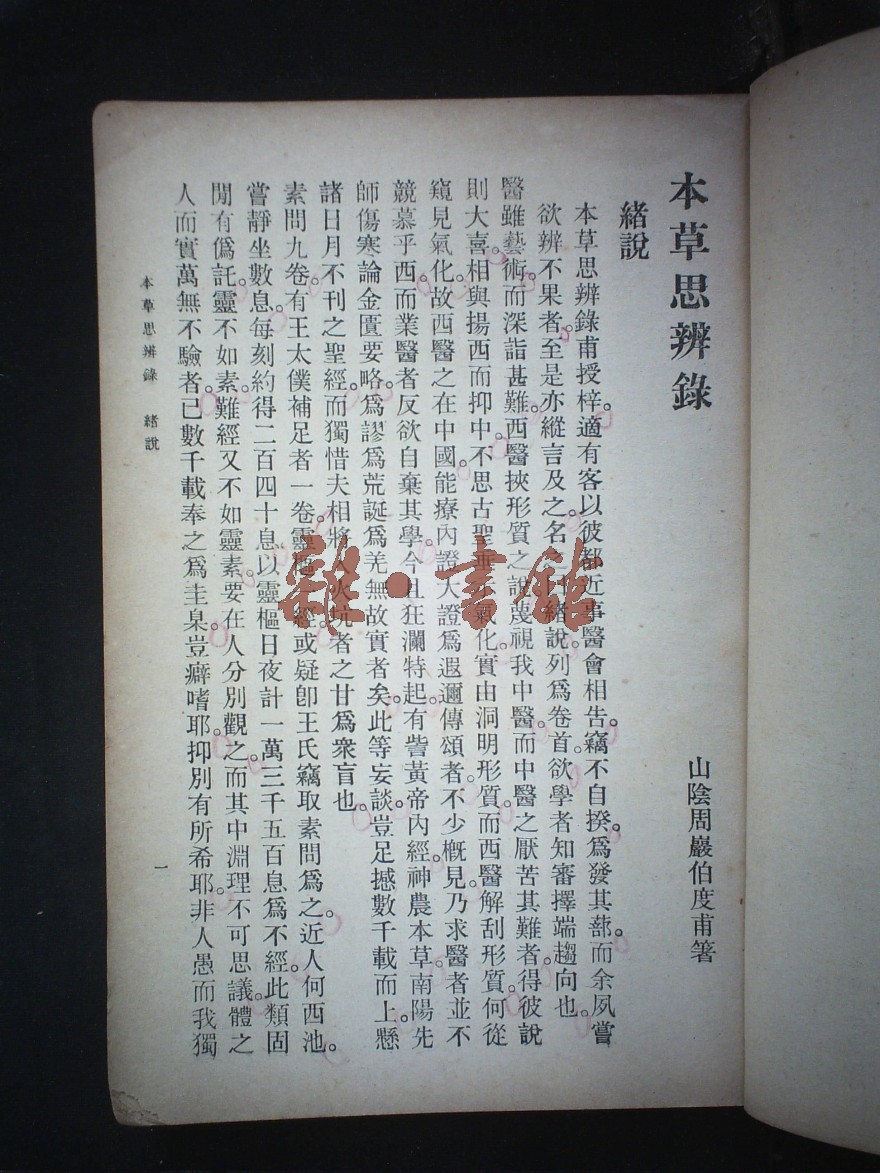 本草思辨錄
山陰周巖伯度甫箸
緒說
本草思辨錄甫授梓。適有客以彼都近事醫會相告。竊不自揆。爲發其蔀。而余夙嘗
欲辨不果者。至是亦縱言及之。名之緒說。列爲卷首。欲學者知審擇端趨向也。
醫雖藝術。而深詣甚難。西醫挾形質之說。蔑視我中醫。而中醫之厭苦其難者。得彼說
則大喜。相與揚西而抑中。不思古聖垂氣化。實由洞明形質。而西醫解刮形質。何從
窺見氣化。故西醫之在中國。能療內證大證爲遐邇傳頌者。不少槪見。乃求醫者並不
競慕乎西。而業醫者反欲自棄其學。今且狂瀾特起。有訾黃帝內經。神農本草。南陽先
師傷寒論金匱要略。爲謬爲荒誕爲羌無故實者矣。此等妄談。豈足撼數千載而上。懸
諸日月不刊之聖經。而獨惜夫相將入火坑者之甘爲衆盲也。
素問九卷。有王太僕補足者一卷。靈樞一經。或疑卽王氏竊取素問爲之。近人何西池。
嘗靜坐數息。每刻約得二百四十息。以靈樞日夜計一萬三千五百息爲不經。此類固
閒有僞託。靈不如素。難經又不如靈素。要在人分別觀之。而其中淵理不可思議。體之
人而實萬無不驗者。已數千載奉之爲圭臬。豈癖嗜耶。抑別有所希耶。非人愚而我獨
本草思辨錄 緒說
一
雜·書館